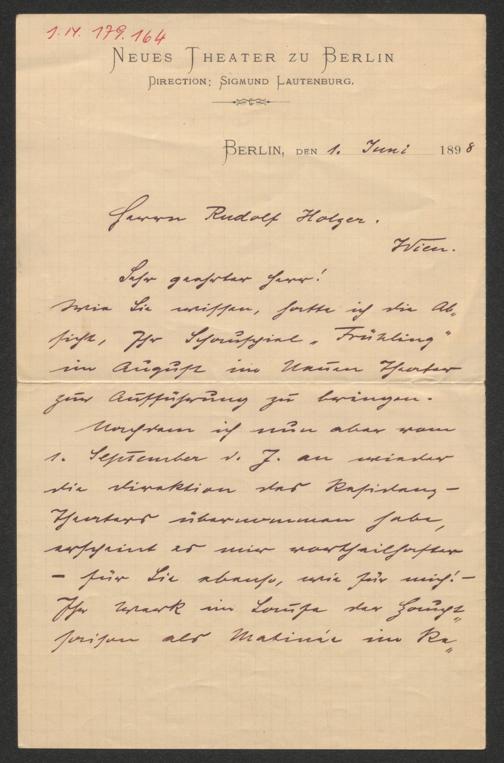 1.IV. 179.164
NEUES THEATER ZU BERLIN
DIRECTION: SIGMUND LAUTENBURG.
BERLIN, DEN 1. Juni 1898
Herrn Rudolf Holzer.
Wien.
Sehr geehrter Herr!
Wie Sie wissen, hatte ich die Ab„
sicht, Ihr Schauspiel „Frühling“
im August im Neuen Theater
zur Aufführung zu bringen.
Nachdem ich nun aber vom
1. September d. J. an wieder
die Direktion des Residenz-
Theaters übernommen habe,
erscheint es mir vortheilhafter
– für Sie ebenso, wie für mich! –
Ihr Werk im Laufe der Haupt„
saison als Matinée im Re„